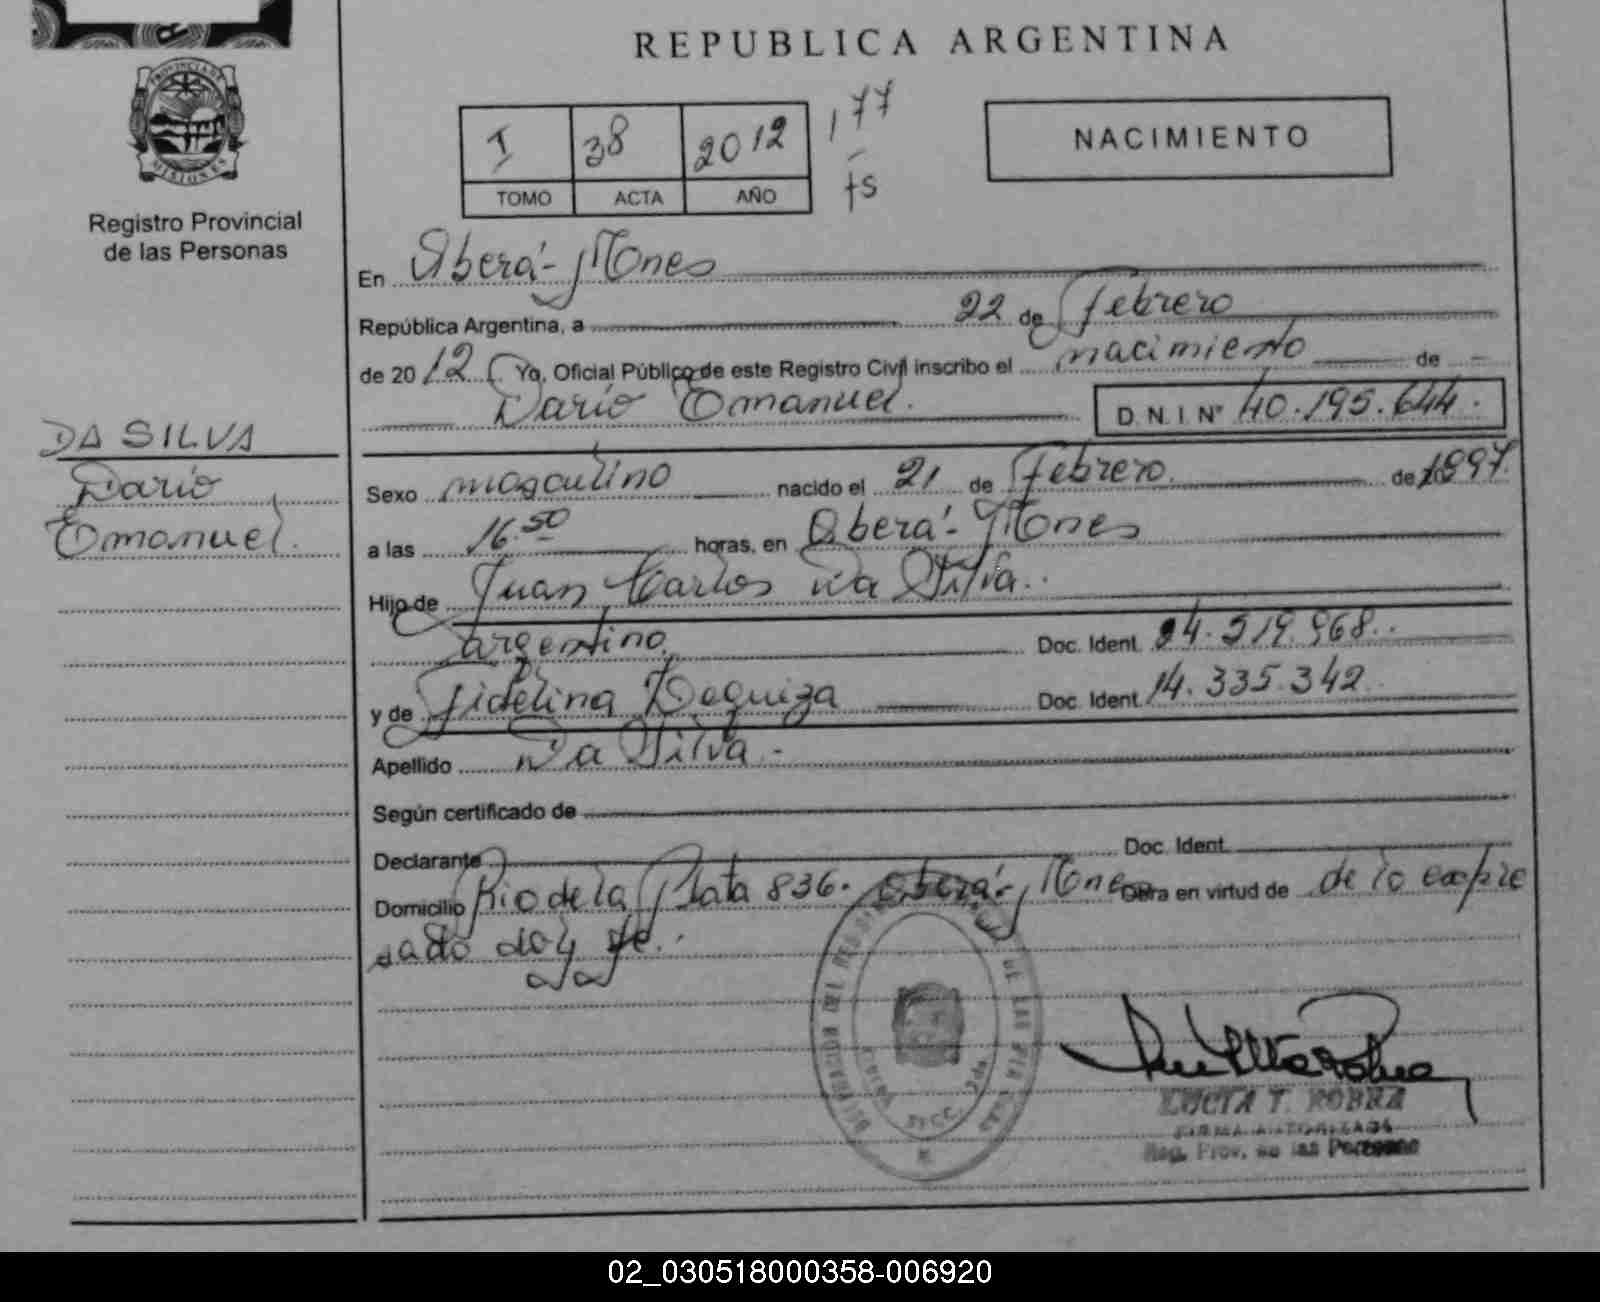 REPUBLICA ARGENTINA
PROVINCIA DE
MISIONES
Registro Provincial
de las Personas
I 38 2012 177
TOMO ACTA AÑO fs
NACIMIENTO
En Oberá - Mones
República Argentina, a 22 de febrero
de 2012. Yo, Oficial Público de este Registro Civil inscribo el nacimiento de
Darío Emanuel. D.N.I. Nº 40.195.644.
DA SILVA
Darío
Emanuel.
Sexo masculino nacido el 21 de febrero de 1997.
a las 16.50 horas, en Oberá - Mones
Hijo de Juan Carlos Da Silva.
argentino. Doc. Ident. 24.519.968.
y de Fidelina Dequiza Doc. Ident. 14.335.342
Apellido Da Silva.
Según certificado de
Declarante Doc. Ident.
Domicilio Rio de la Plata 836. Oberá - Mones Obra en virtud de de lo expre
sado doy fe.
DE LAS
SECC. 2da
LUCIA T. ROBRA
FIRMA AUTORIZADA
Reg. Prov. de las Personas
02_030518000358-006920